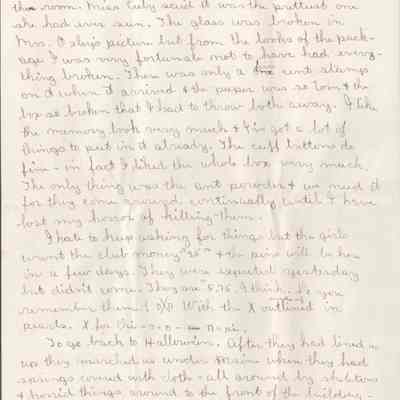 the room. Miss Ruby said it was the prettiest one
she had ever seen. The glass was broken in
Mrs. O'day's picture but from the looks of the pack-
age I was very fortunate not to have had every-
thing broken. There was only a cent stamp
on it when it arrived & the paper was so torn & the
box so broken that I had to throw both away. I like
the memory book very much & I've got a lot of
things to put in it already. The cuff buttons do
fine - in fact I liked the whole box very much.
The only thing was the ant powder & we need it
for they come around continually until I have
lost my horror of killing them.
I hate to keep asking for things but the girls
want the club money & the pins will be here
in a few days. They were expected yesterday
but didn't come. They are 5.75, I think. Do you
remember them? With the X outlined in
pearls. X for Chi - O - O - pi.
To go back to Hallowe'en. After they had lined us
up they marched us under Main where they had
springs covered with cloth - all around by skeletons
& horrid things around to the front of the building -